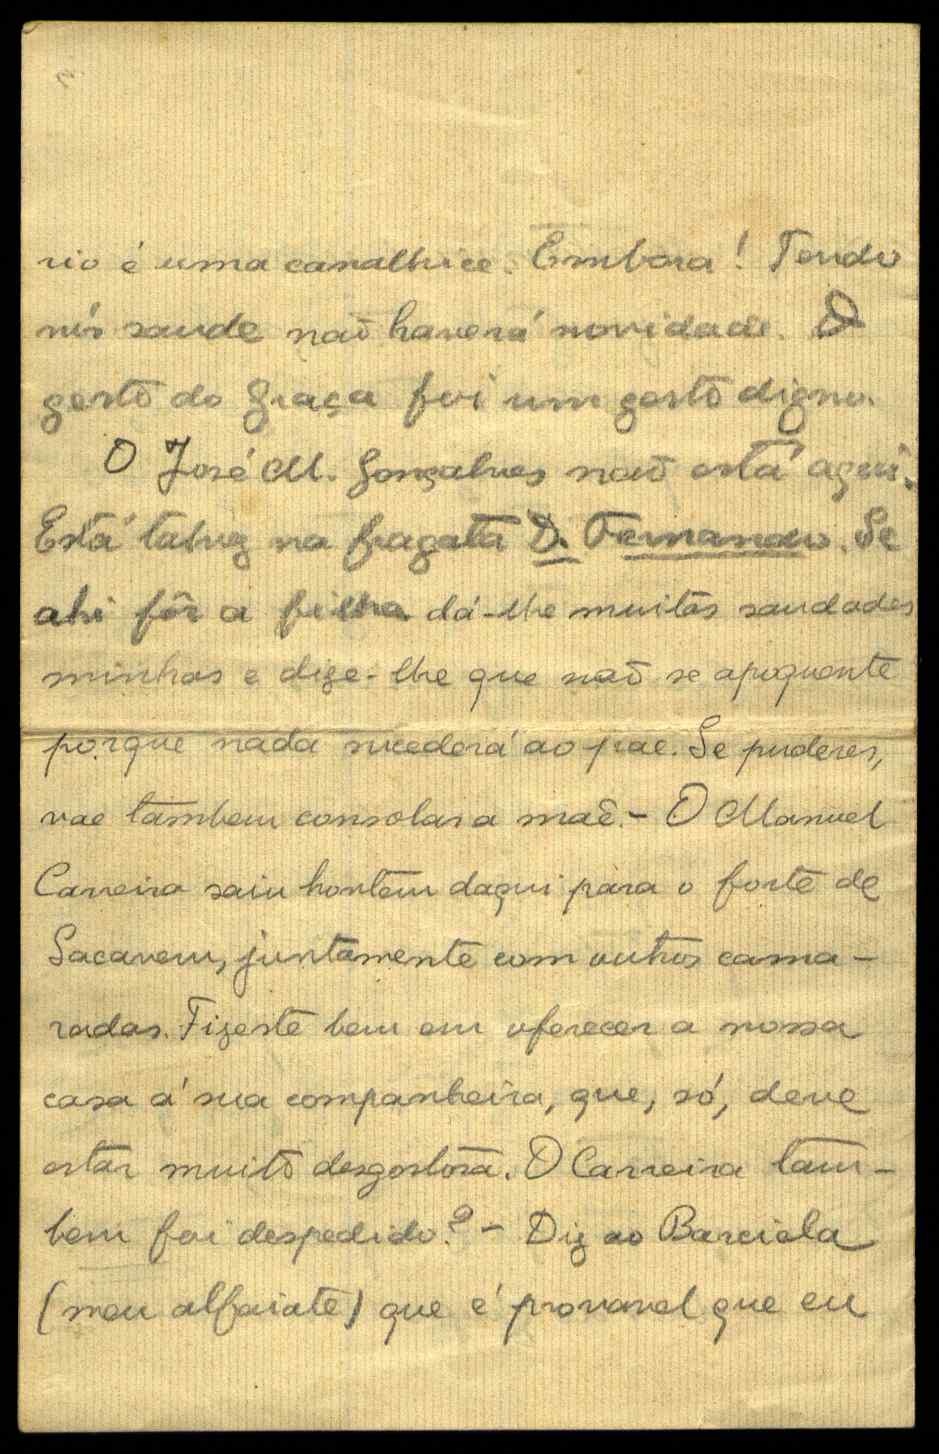 rio é uma canalhice. Embora! Tendo
nós saude não haverá novidade. O
gesto do Graça foi um gesto digno.
O José M. Gonçalves não está aqui.
Está talvez na fragata D. Fernando. Se
ahi fôr a filha dá-lhe muitas saudades
minhas e dize-lhe que não se apoquente
porque nada sucederá ao pae. Se puderes,
vae tambem consolar a mãe. - O Manuel
Carreira saiu hontem daqui para o forte de
Sacavem, juntamente com outros cama-
radas. Fizeste bem em oferecer a nossa
casa á sua companheira, que, só, deve
estar muito desgostosa. O Carreira tam-
bem foi despedido? - Diz ao Barciela
(meu alfaiate) que é provavel que eu